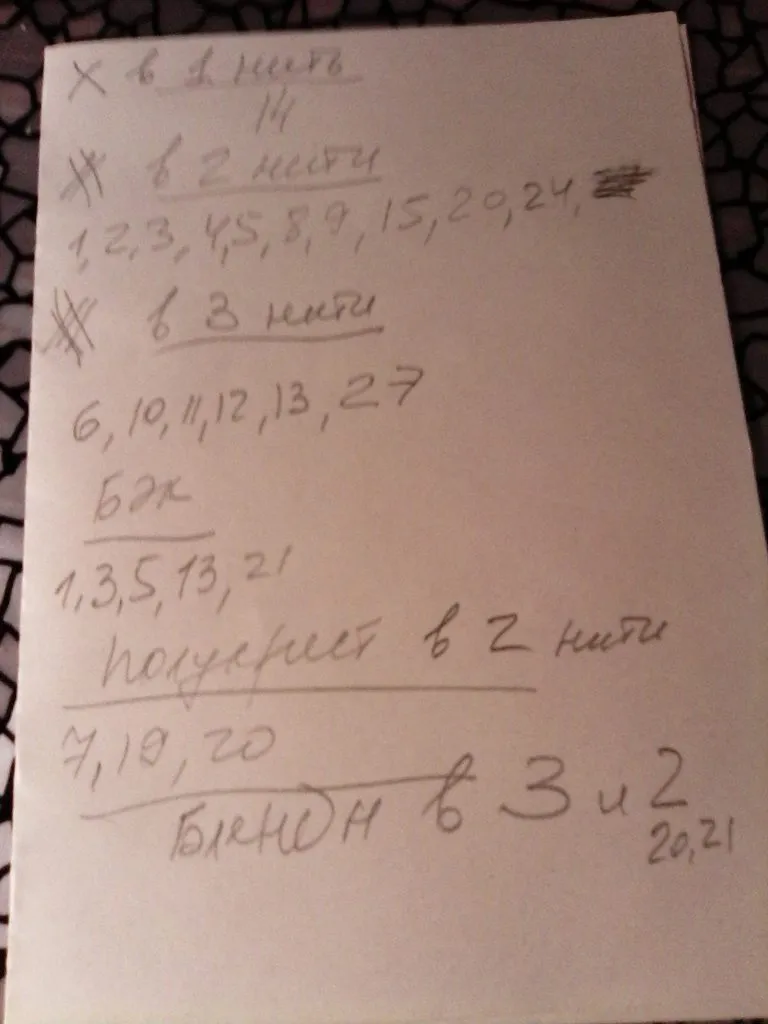 X в 1 нить
14
в 2 нити
1,2,3,4,5,8,9,15,20,24,
в 3 нити
6,10,11,12,13,27
Бэк
1,3,5,13,21
Полукрест в 2 нити
7,19,20
Бленд в 3 и 2
20,21